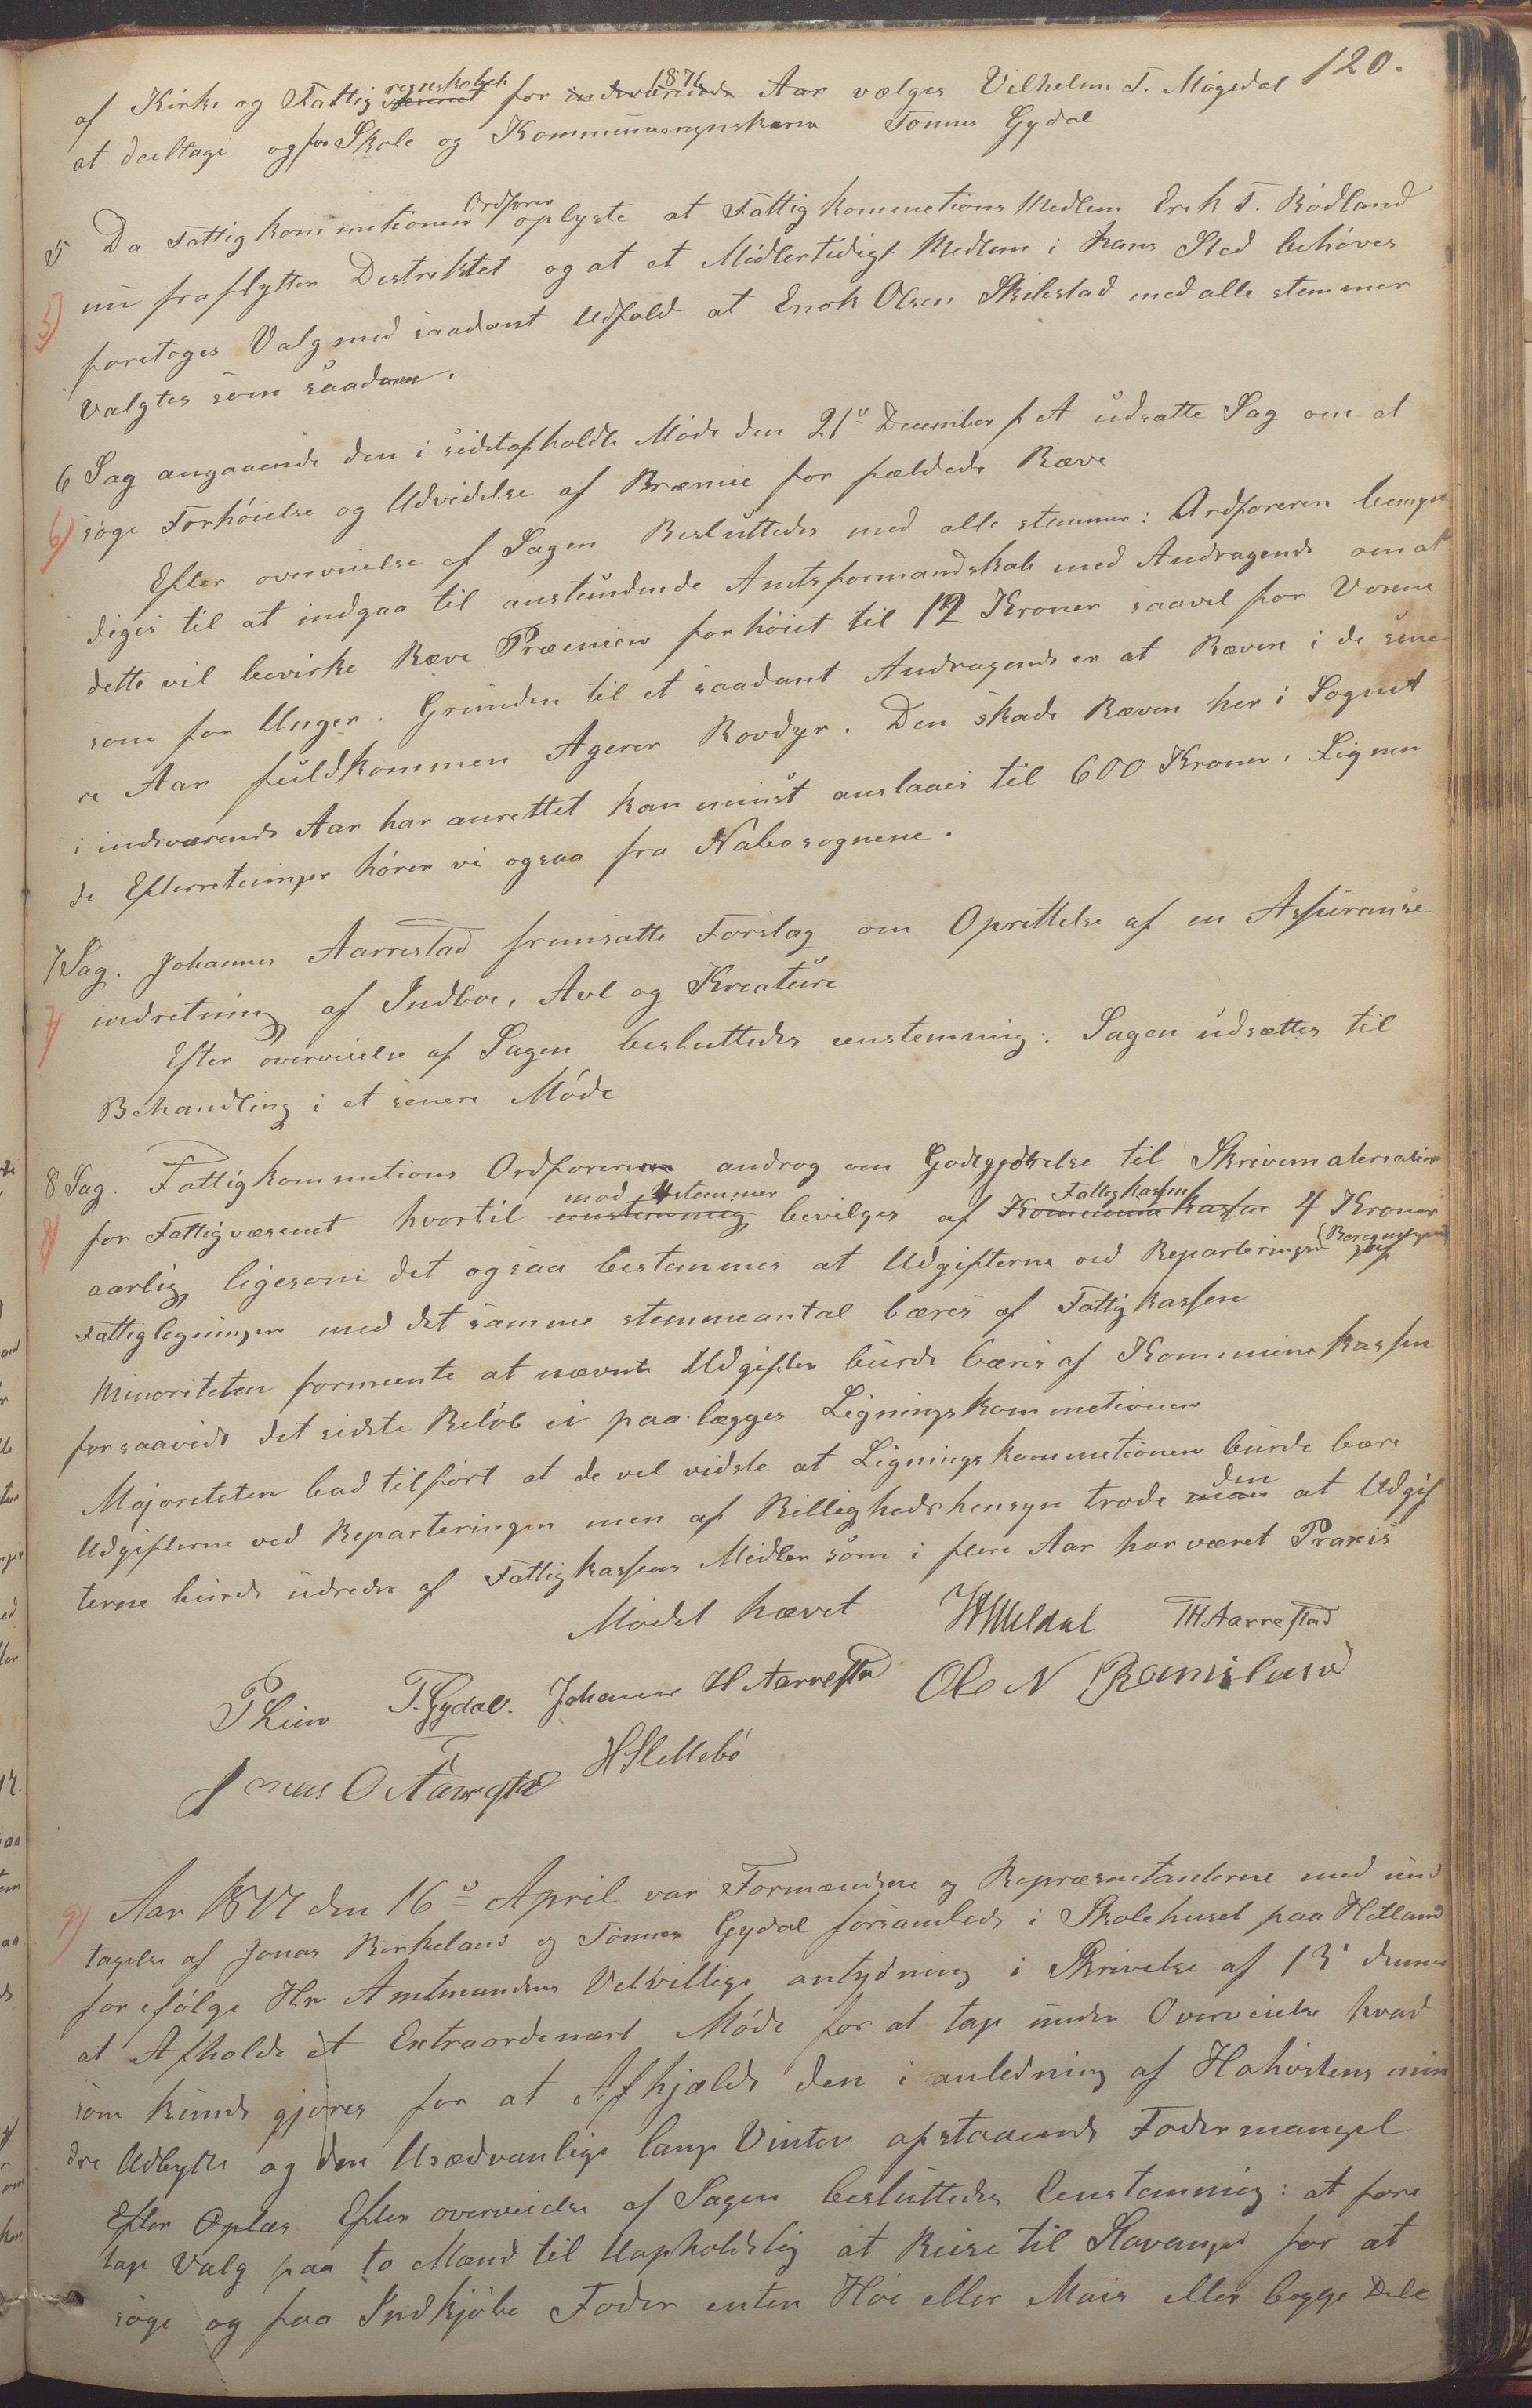 120.
af Kirke og Fattigvæsenet regnskabet for indeværende 1876 Aar vælges Vilhelm T. Mögedal
at deeltage og for Skole og Kommuneregnskaben Tönnes Gydal
5 Da Fattigkommetionens Ordförer oplyste at Fattigkommetions Medlem Erik T. Rödland
5) nu fraflytter Destriktet og at et Midlertidigt Medlem i hans Sted behöves
foretoges Valg med saadant Udfald at Enok Olsen Skilestad med alle stemmer
Valgtes som saadan.
6 Sag angaaende den i sidstafholdte Möde den 21de December f A udsatte Sag om at
6) söge Forhöielse og Udvidelse af Præmie for fældede Ræve
Efter overveielse af Sagen Besluttedes med alle stemmer: Ordföreren bemyn
diges til at indgaa til anstundende Amtsformandskab med Andragende om at
dette vil bevirke Ræve Præmien forhöiet til 12 Kroner saavel for Voxne
som for Unger. Grunden til et saadant Andragende er at Ræven i de sene
re Aar fuldkommen Agerer Rovdyr. Den skade Ræven her i Sognet
i indeværende Aar har anrettet kan minst anslaaes til 600 Kroner. Lignen
de Efterretninger hörer vi ogsaa fra Nabosognene.
7 Sag. Johannes Aarrestad fremsatte Forslag om Oprettelse af en Assuranse
7) indretning af Indboe, Avl og Kreature
Efter overveielse af Sagen besluttedes eenstemmig: Sagen udsættes til
Behandling i et senere Möde
8 Sag. Fattigkommetions Ordföreren androg om Godtgjörelse til Skrivematerialier
8) for Fattigvæsenet hvortil eenstemmig mod 4 stemmer bevilges af Kommunekassen Fattigkassen 4 Kroner
aarlig ligesom det ogsaa bestemmes at Udgifterne ved Reparteringen af
Fattigligningen med det samme stemmeantal bæres af Fattigkassen
Minoriteten formeente at nævnte Udgifter burde bæres af Kommunekassen
forsaavidt det sidste Belöb ei paalægges Ligningskommetionen
Majoriteten bad tilfört at de vel vidste at Ligningskommetionen burde bære
Udgifterne ved Reparteringen men af Billighedshensyn trode man den at Udgif
terne burde udredes af Fattigkassens Midler som i flere Aar har været Praxis
Mödet hævet TH Aarrestad
T. Gydal. Johannes H Aarrestad Ole N Ramsland
Jonas O Aarrestad H Slettebö
9) Aar 1877 den 16de April var Formændene og Repræsentanterne med und
tagelse af Jonas Birkeland og Tönnes Gydal forsamlede i Skolehuset paa Hetland
for ifölge Hr Amtmandens Velvillige antydning i Skrivelse af 13de dennes
at Afholde et Extraordenært Möde for at tage under Overveielse hvad
som kunde gjöres for at Afhjælde den i anledning af Höhöstens min
dre Udbytte og den Usædvanlige lange Vinter opstaaende Fodermangel
Efter Oplæs Efter overveielse af Sagen besluttedes Eenstemmig: at fore
tage Valg paa to Mænd til Uopholdelig at Reise til Stavanger for at
söge og faa Indkjöbe Foder enten Höe eller Mais eller begge Dele